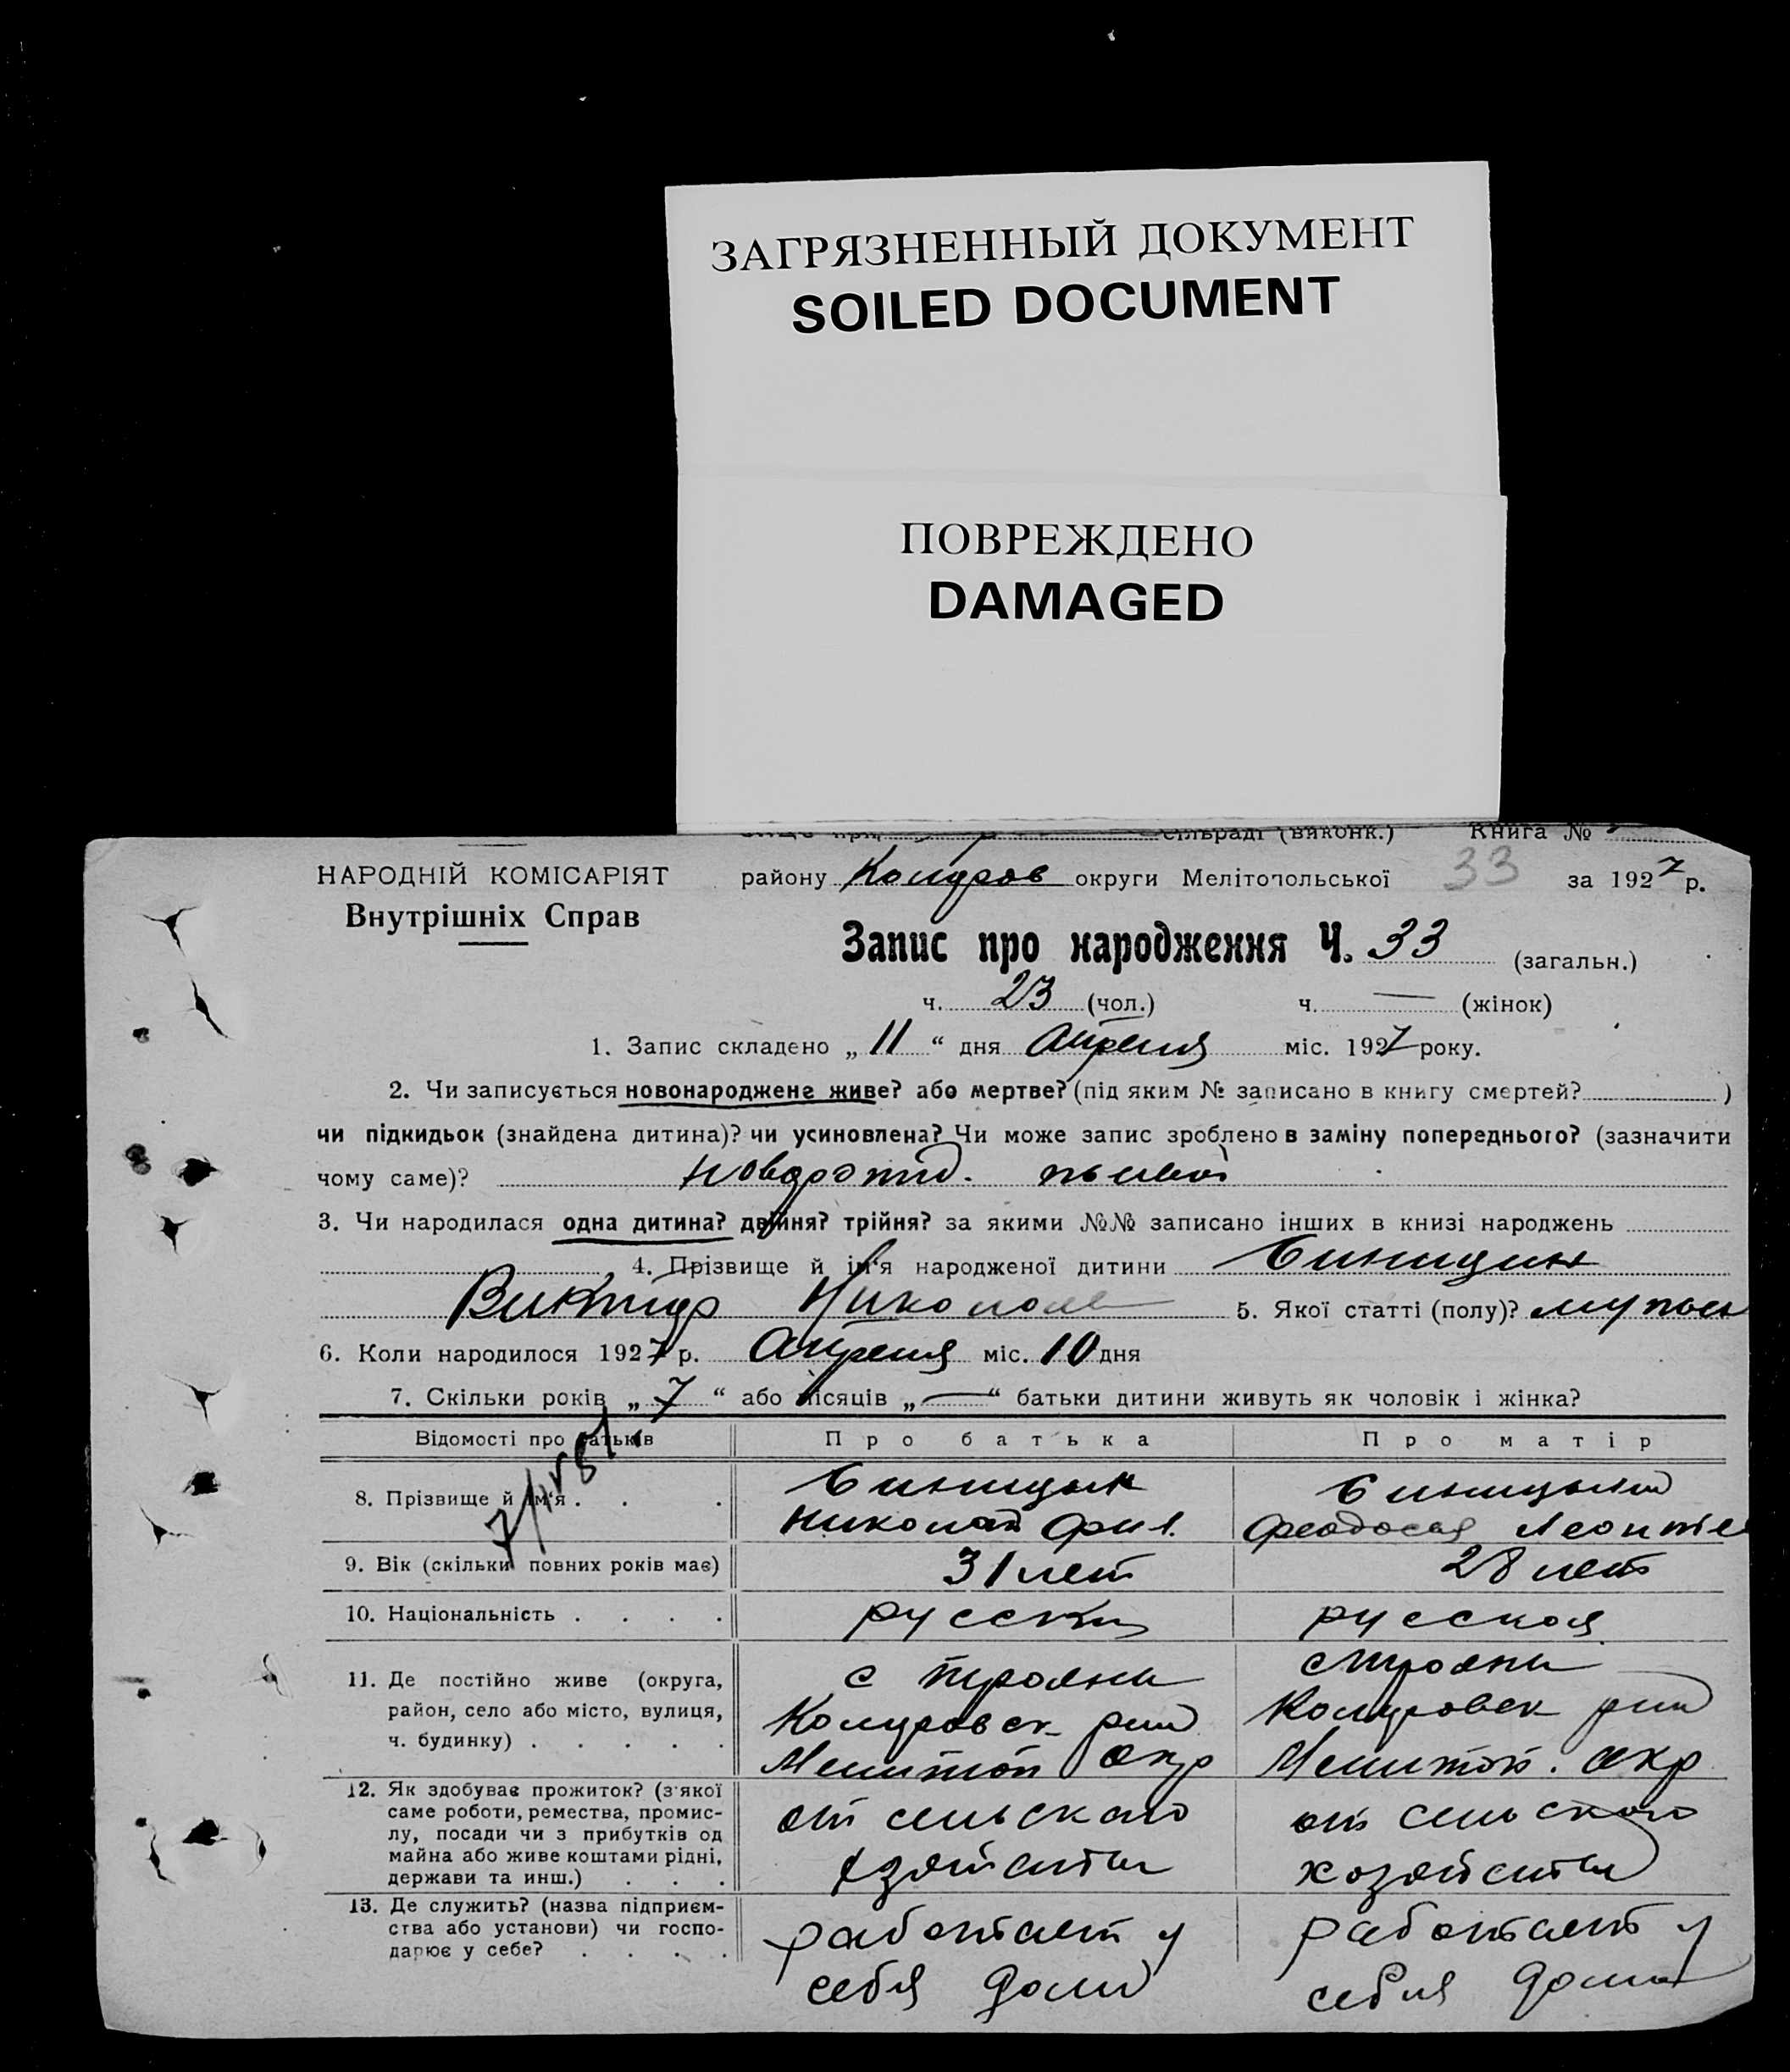 ЗАГРЯЗНЕННЫЙ ДОКУМЕНТ
SOILED DOCUMENT
ПОВРЕЖДЕНО
DAMAGED
сільраді (виконк.) Книга №
НАРОДНІЙ КОМІСАРІЯТ
Внутрішніх Справ
району округи Мелітопольської 33 за 1927 р.
Запис про народження Ч. 33 (загальн.)
ч. 23 (чол.) ч. — (жінок)
1. Запис складено „ 11 “ дня Апреля міс. 1927 року.
2. Чи записується новонароджене живе? або мертве? (під яким № записано в книгу смертей? )
чи підкидьок (знайдена дитина)? чи усиновлена? Чи може запис зроблено в заміну попереднього? (зазначити
чому саме)? новорожд. живой
3. Чи народилася одна дитина? двійня? трійня? за якими №№ записано інших в книзі народжень
4. Прізвище й ім'я народженої дитини Синицин
Виктор Николаев 5. Якої статті (полу)? мужск
6. Коли народилося 1927 р. Апреля міс. 10 дня
7. Скільки років „ 7 “ або місяців „ — “ батьки дитини живуть як чоловік і жінка?
Відомості про батьків Про батька Про матір
8. Прізвище й ім'я . . . Синицын
Николай Фил. Феодосия Леонтье
9. Вік (скільки повних років має) 31 лет 28 лет
10. Національність . . . . русский русская
11. Де постійно живе (округа, район, село або місто, вулиця, ч. будинку) . . . . . с Трояны
рай
Мелитоп окр Мелитоп. окр
12. Як здобуває прожиток? (з якої
саме роботи, ремества, промис-
лу, посади чи з прибутків од
майна або живе коштами рідні,
держави та инш.) . . . от сельскаго от сельского
хозяйства
13. Де служить? (назва підприєм-
ства або установи) чи госпо-
дарює у себе? . . . . работает у работает у
себя дома себя дома